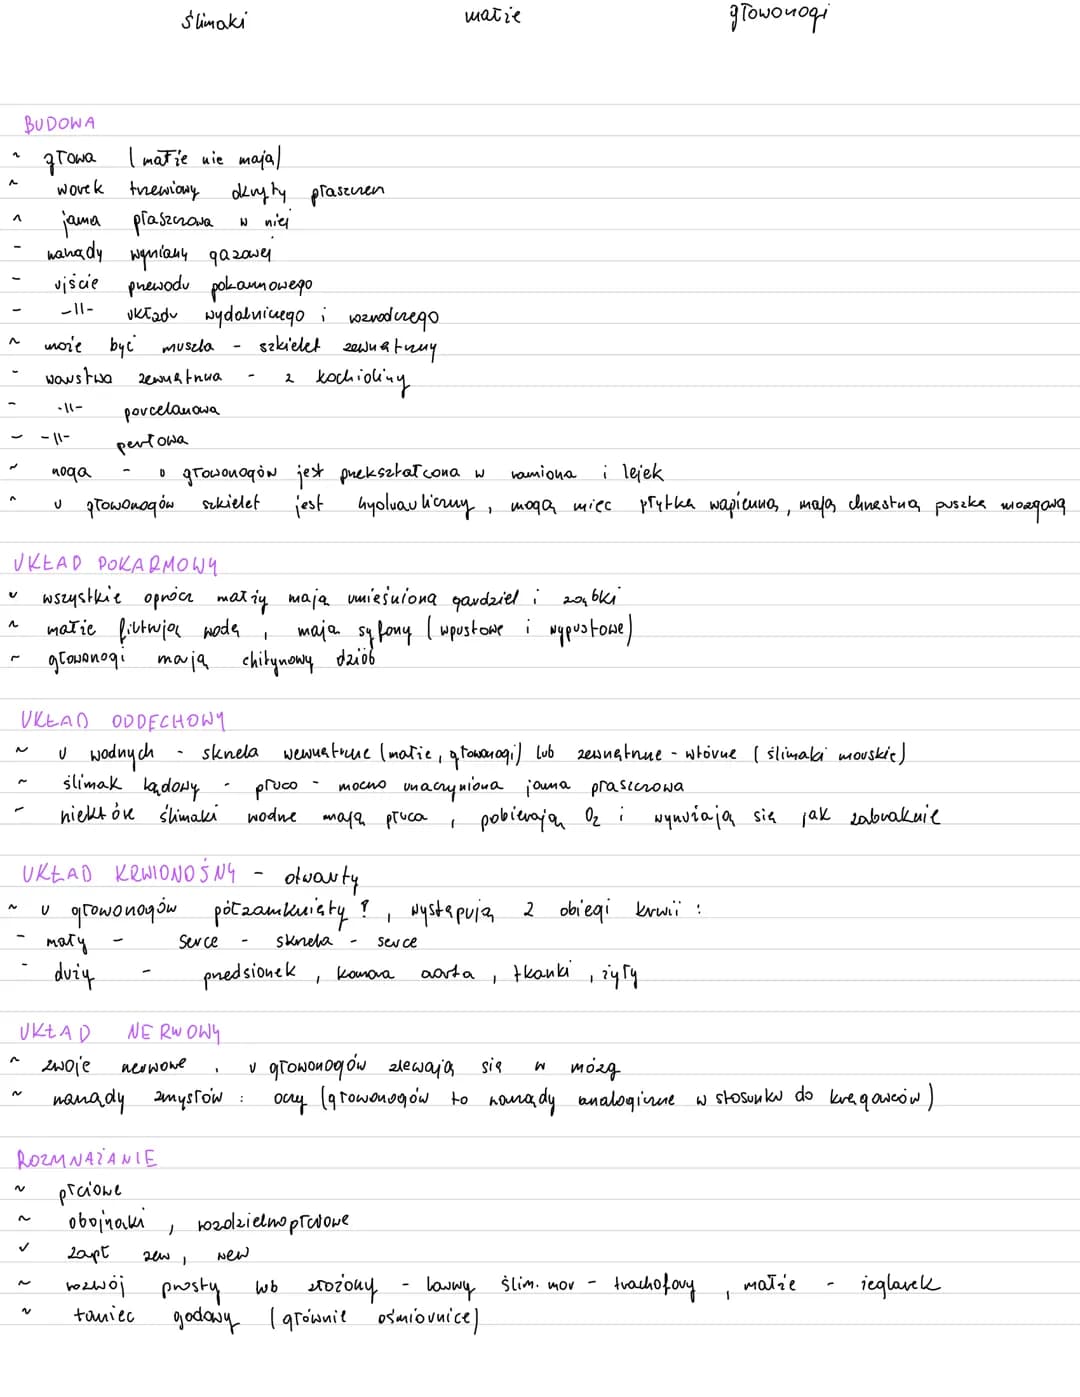 ślimaki małże głowonogi
BUDOWA
~ głowa (małże nie mają)
~ worek trzewiowy okryty płaszczem
~ jama płaszczowa w niej
- narządy wymiany gazowej
- ujście przewodu pokarmowego
- -||- układu wydalniczego i rozrodczego
~ może być muszla - szkielet zewnętrzny
- warstwa zewnętrzna - z kochioliny
- -||- porcelanowa
- -||- perłowa
~ noga - u głowonogów jest przekształcona w ramiona i lejek
~ u głowonogów szkielet jest hydrauliczny, mogą mieć płytkę wapienną, mają chrzęstną puszkę mózgową
UKŁAD POKARMOWY
~ wszystkie oprócz małży mają umięśnioną gardziel i ząbki
~ małże filtrują wodę, mają syfony (wpustowe i wypustowe)
~ głowonogi mają chitynowy dziób
UKŁAD ODDECHOWY
~ u wodnych - skrzela wewnętrzne (małże, głowonogi) lub zewnętrzne - wtórne (ślimaki morskie)
~ ślimak lądowy - płuco - mocno unaczyniona jama płaszczowa
- niektóre ślimaki wodne mają płuca, pobierają O2 i wynurzają się jak zabraknie
UKŁAD KRWIONOŚNY - otwarty
~ u głowonogów półzamknięty?, występują 2 obiegi krwii:
- mały - serce - skrzela - serce
- duży - przedsionek, komora aorta, tkanki, żyły
UKŁAD NERWOWY
~ zwoje nerwowe, u głowonogów zlewają się w mózg
~ narządy zmysłów: oczy (głowonogów to narządy analogiczne w stosunku do kręgowców)
ROZMNAŻANIE
~ płciowe
~ obojnaki, rozdzielnopłciowe
~ zapł zew, wew
~ rozwój prosty lub złożony - larwy ślim. mor - trochofory, małże - żeglarek
~ taniec godowy (głównie ośmiornice)